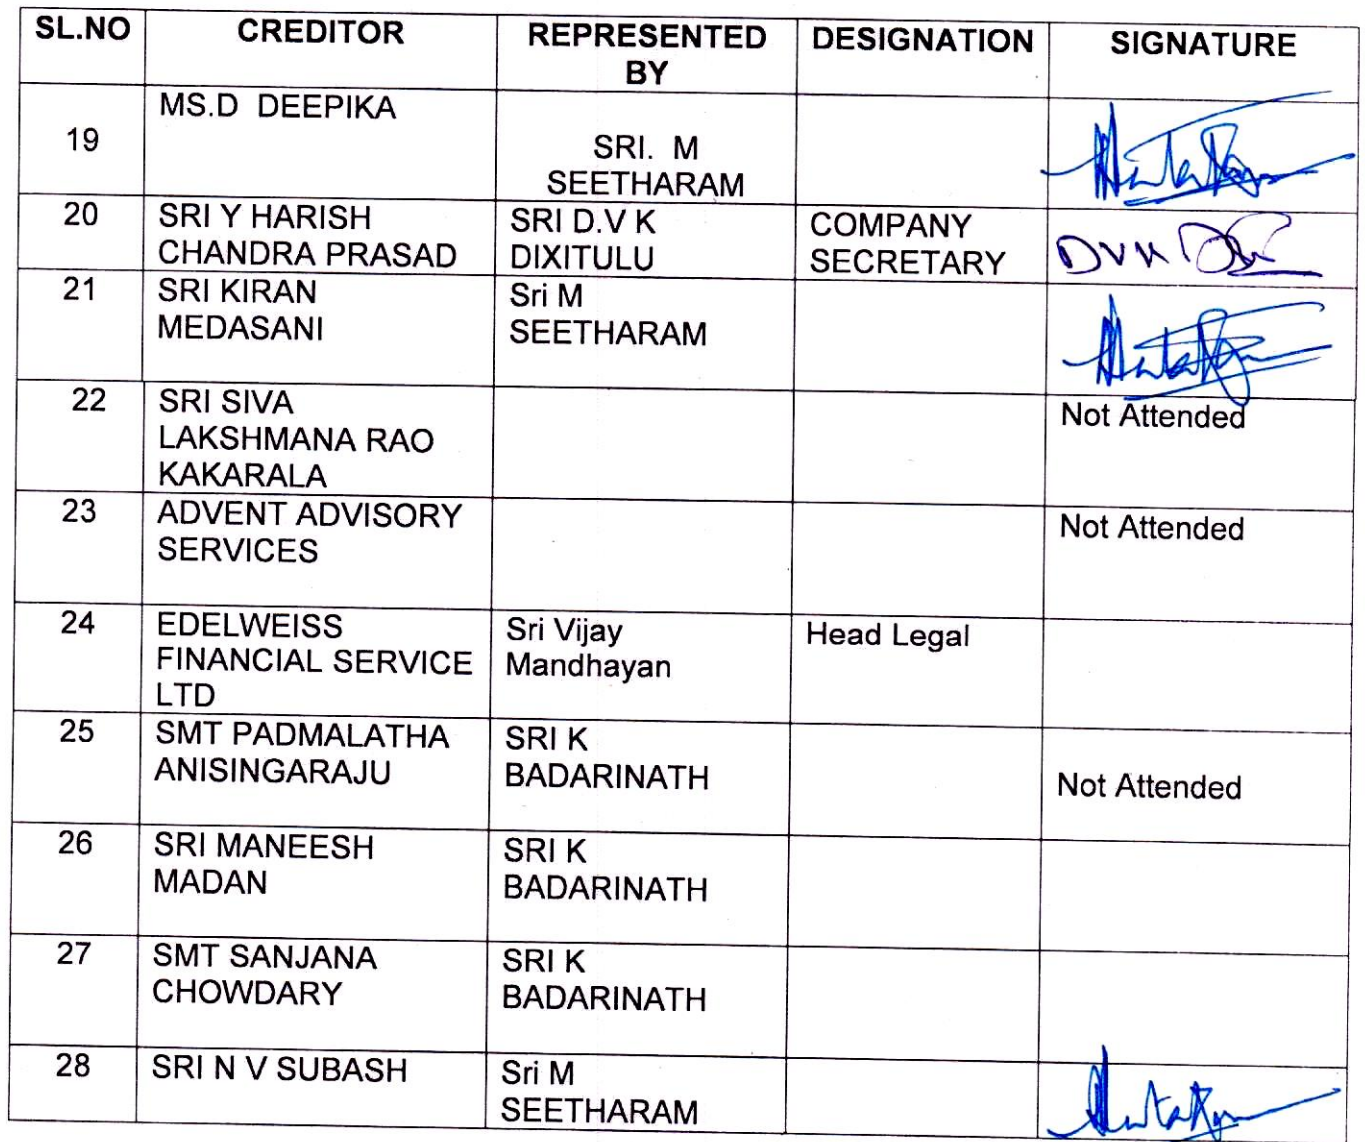 SL.NO CREDITOR REPRESENTED BY DESIGNATION SIGNATURE
19 MS.D DEEPIKA SRI. M SEETHARAM
20 SRI Y HARISH CHANDRA PRASAD SRI D.V K DIXITULU COMPANY SECRETARY DVK
21 SRI KIRAN MEDASANI Sri M SEETHARAM
22 SRI SIVA LAKSHMANA RAO KAKARALA Not Attended
23 ADVENT ADVISORY SERVICES Not Attended
24 EDELWEISS FINANCIAL SERVICE LTD Sri Vijay Mandhayan Head Legal
25 SMT PADMALATHA ANISINGARAJU SRI K BADARINATH Not Attended
26 SRI MANEESH MADAN SRI K BADARINATH
27 SMT SANJANA CHOWDARY SRI K BADARINATH
28 SRI N V SUBASH Sri M SEETHARAM